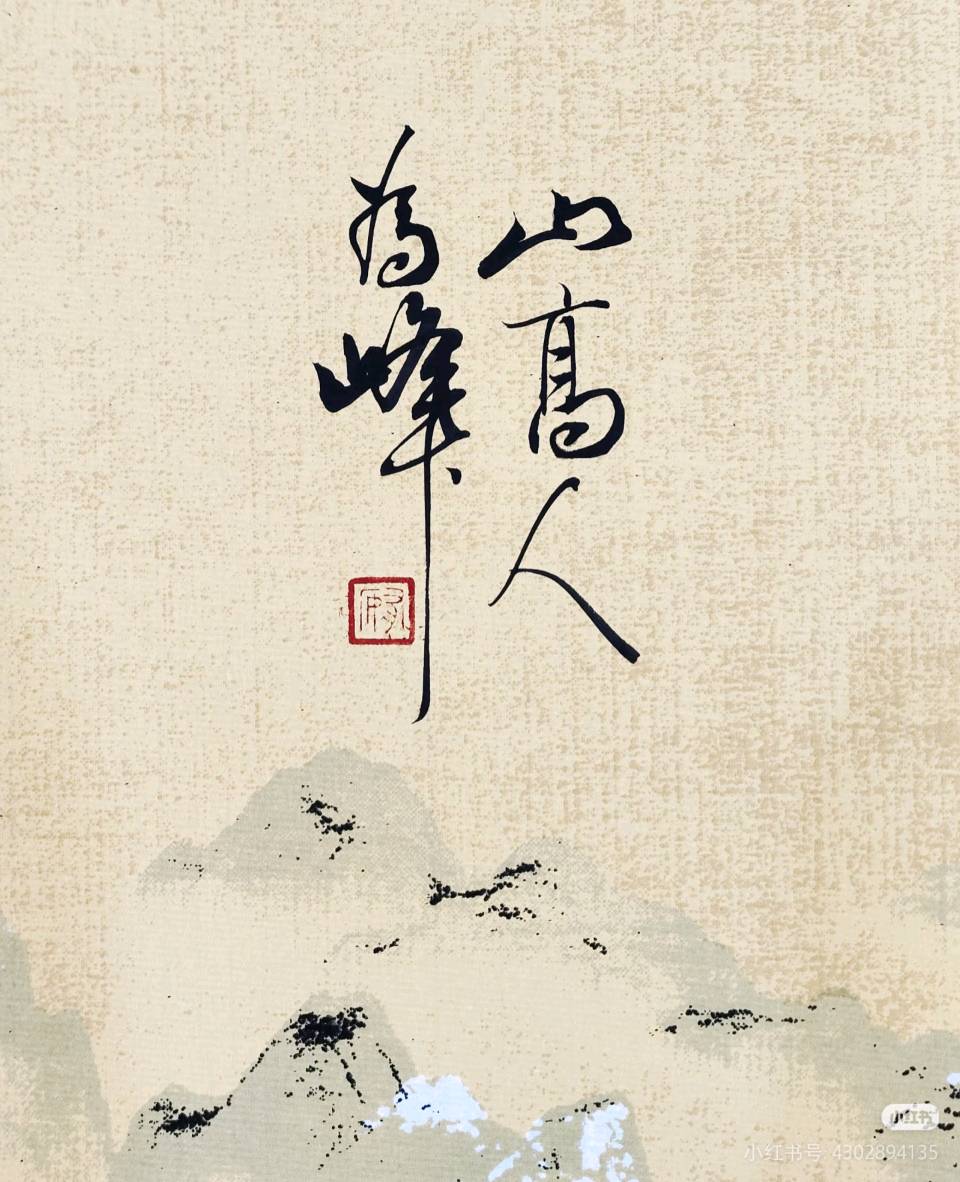 山高人
為峰
小红书
小红书号 4302894135